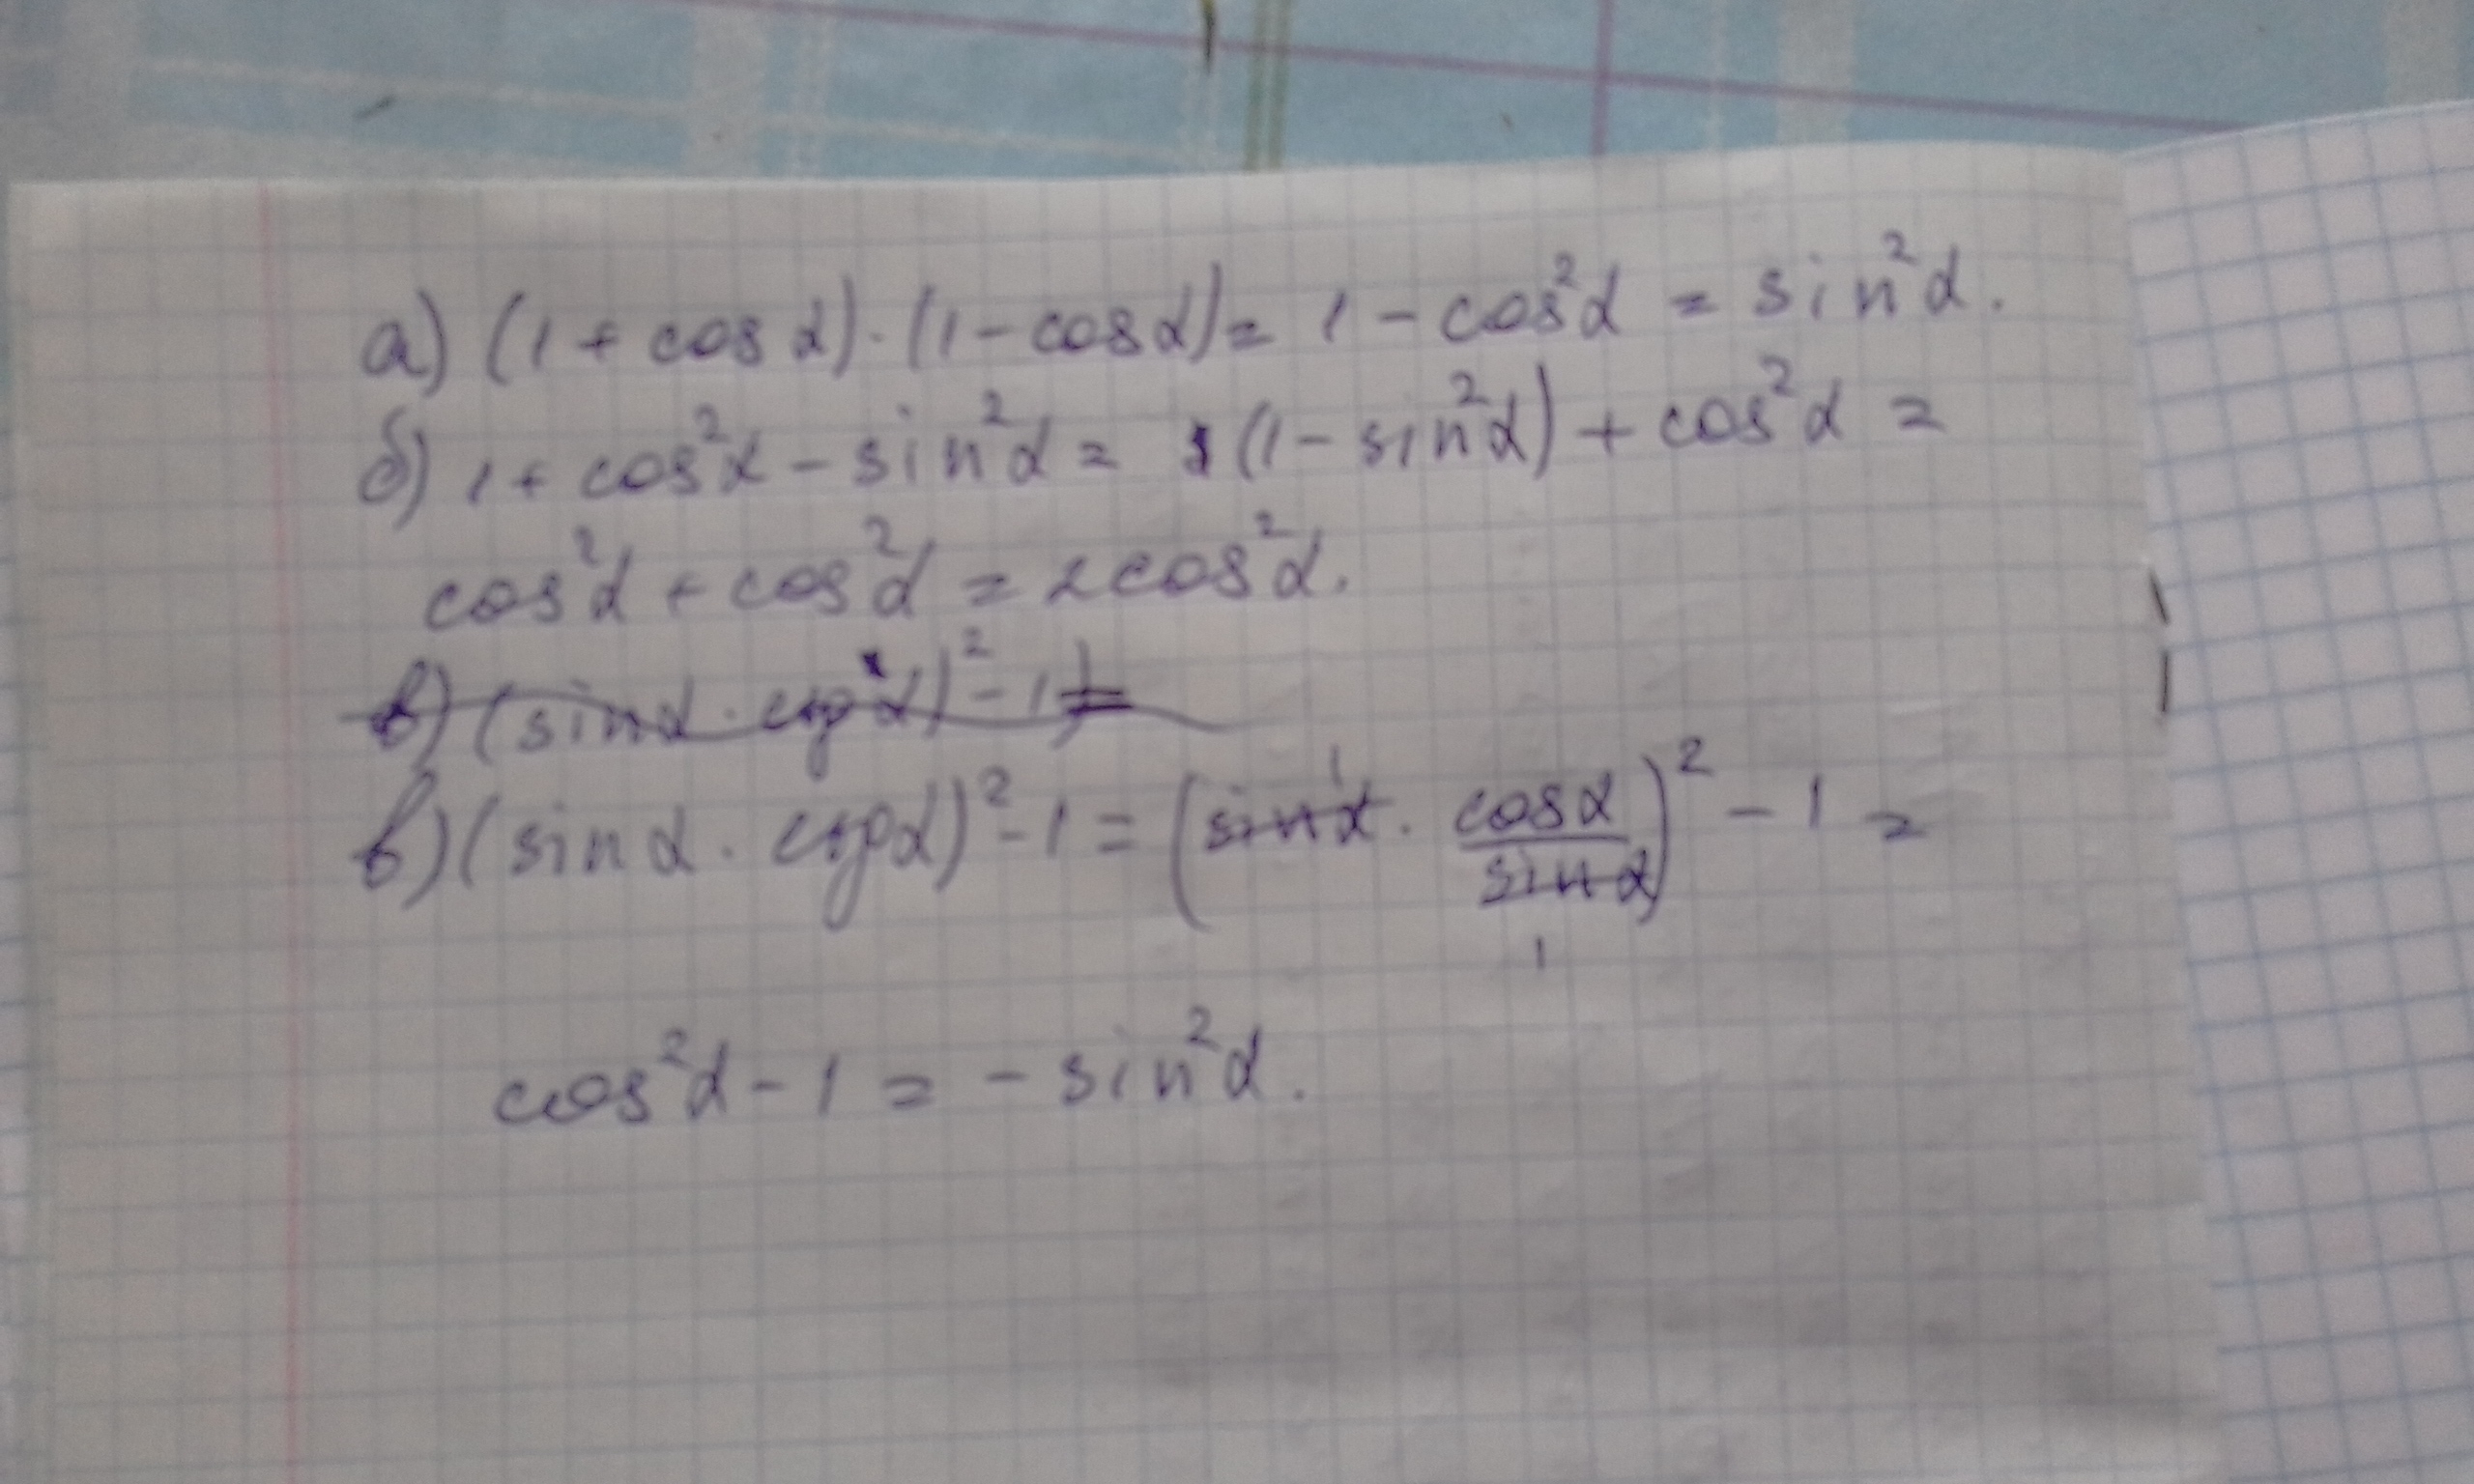 а) (1 + cos α) · (1 - cos α) = 1 - cos²α = sin²α.
б) 1 + cos²α - sin²α = (1 - sin²α) + cos²α =
cos²α + cos²α = 2cos²α.
в) (sin α · ctg α)² - 1 =
в) (sin α · ctg α)² - 1 = (sin α · cos α / sin α)² - 1 =
1
1
cos²α - 1 = - sin²α.